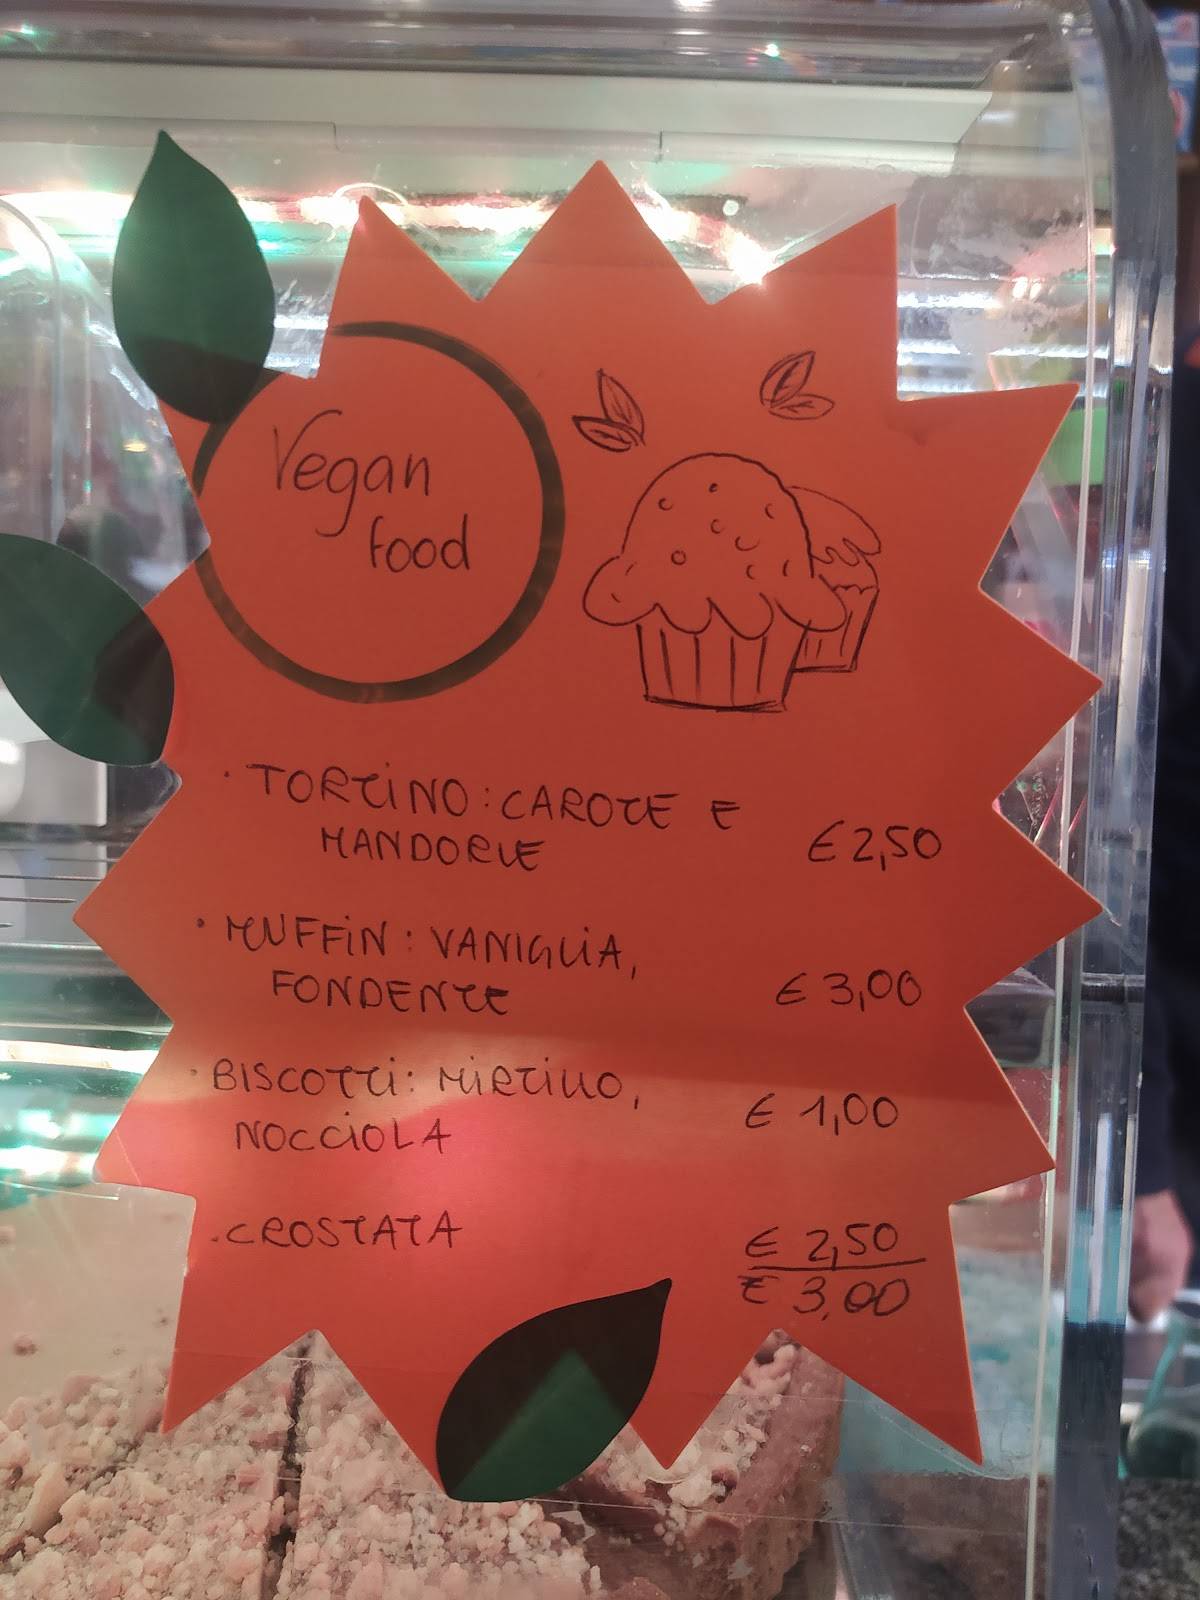 Vegan
food
· TORTINO: CAROTE E
MANDORLE
€ 2,50
· MUFFIN: VANIGLIA,
FONDENTE
€ 3,00
· BISCOTTI: MIRTILLO,
NOCCIOLA
€ 1,00
· CROSTATA
€ 2,50
€ 3,00